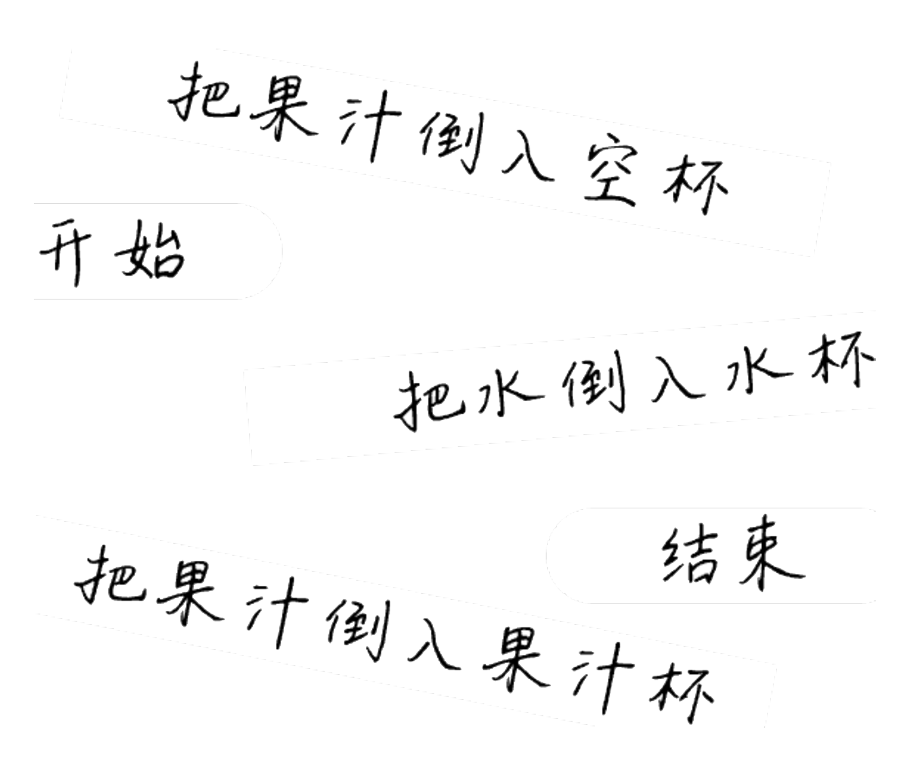 把果汁倒入空杯
开始
把水倒入水杯
结束
把果汁倒入果汁杯